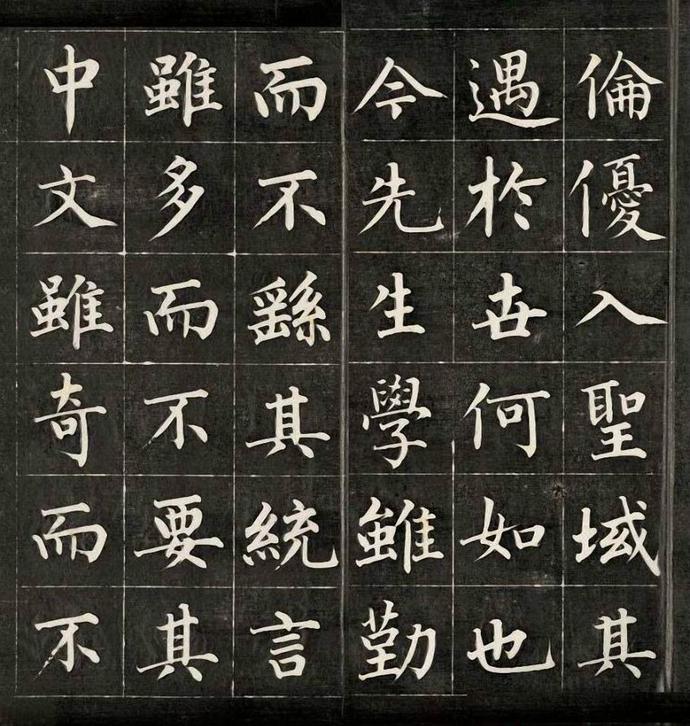 倫優入聖域其
遇於世何如也
今先生學雖勤
而不繇其統言
雖多而不要其
中文雖奇而不